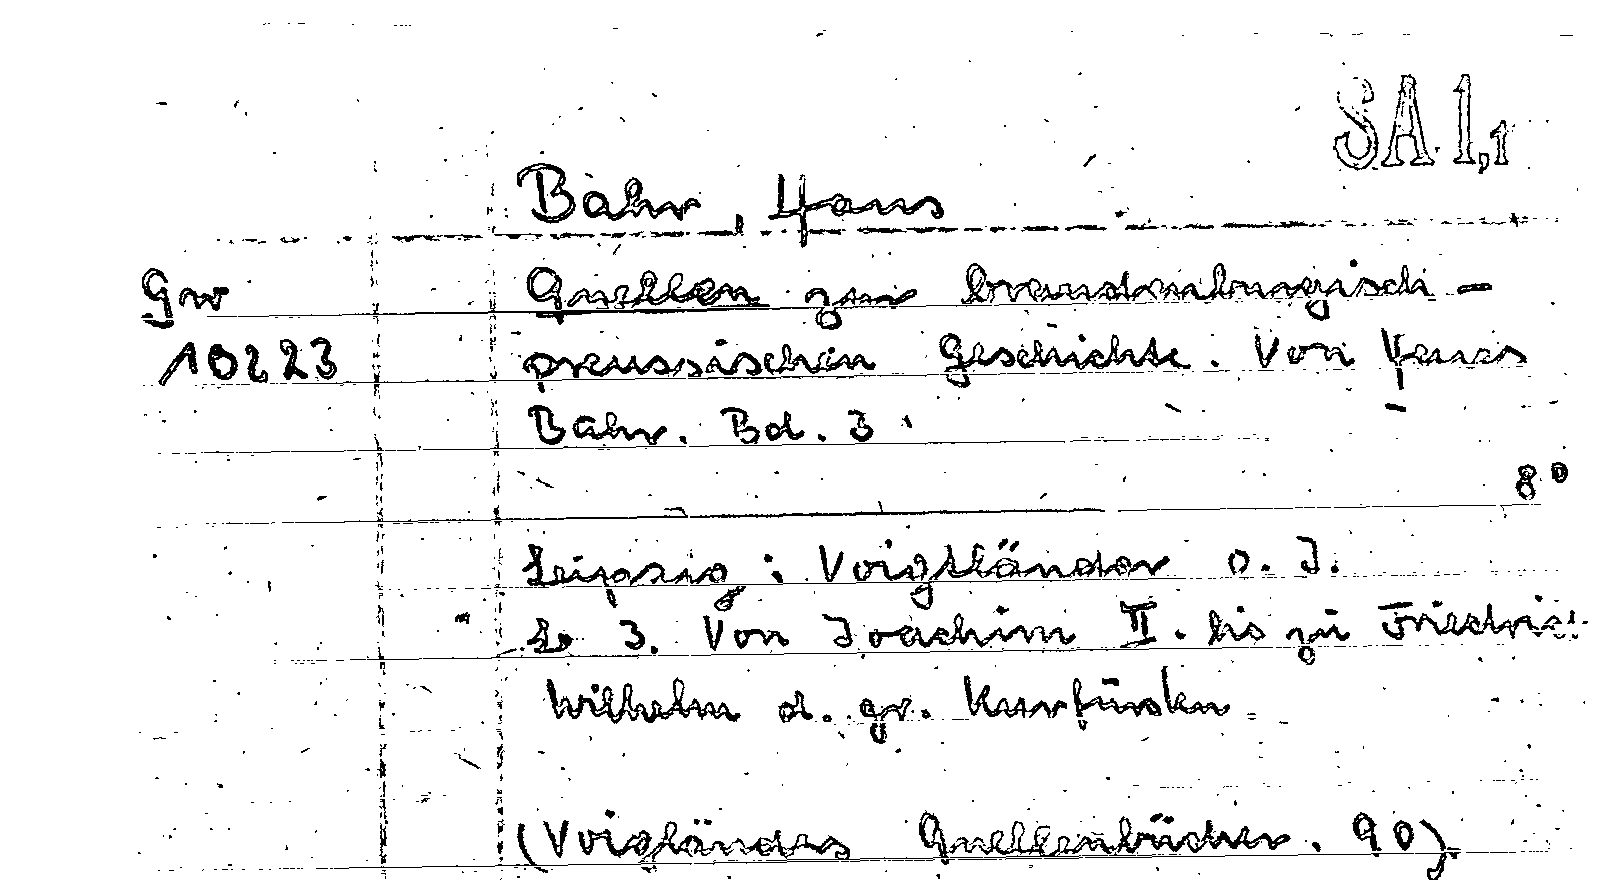 SA 1,1
Bahr, Hans
Gw
Quellen zur brandenburgisch-
10223
preussischen Geschichte. Von Hans
Bahr. Bd. 3.
8°
Leipzig: Voigtländer o. J.
3. Von Joachim II. bis zu Friedrich
Wilhelm d. gr. Kurfürsten
(Voigländers Quellenbücher. 90).